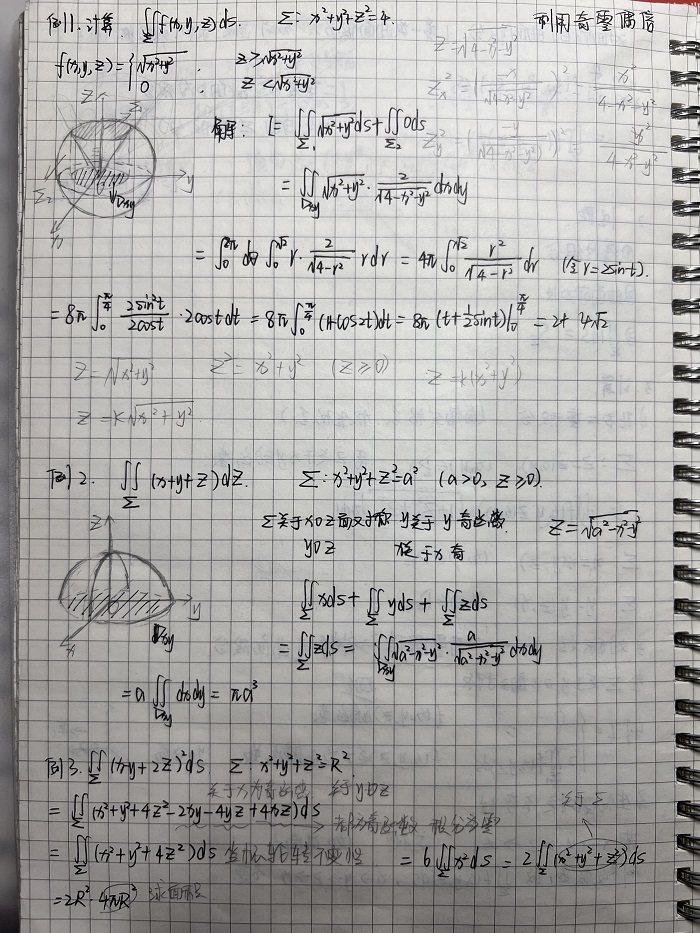 例1. 计算 ∬_Σ f(x,y,z)ds. Σ: x²+y²+z²=4. 利用奇
f(x,y,z)={√(x²+y²), z≥√(x²+y²)
0, z<√(x²+y²)
z=√(4-x²-y²)
z_x²=(-x/√(4-x²-y²))²=x²/(4-x²-y²)
z_y²=(-y/√(4-x²-y²))²=y²/(4-x²-y²)
z Σ₁ Σ₂ Dxy y x
解: I=∬_Σ₁ √(x²+y²)ds+∬_Σ₂ 0ds
=∬_Dxy √(x²+y²)·2/√(4-x²-y²) dxdy
=∫₀^2π dθ ∫₀^√2 r·2/√(4-r²) rdr=4π∫₀^√2 r²/√(4-r²) dr (令r=2sint).
=8π∫₀^π/4 2sin²t/2cost·2costdt=8π∫₀^π/4 (1-cos2t)dt=8π(t+½sint)|₀^π/4=2π 4√2
z=√(x²+y²) z²=x²+y² (z≥0) z=k(x²+y²)
z=k√(x²+y²)
例2. ∬_Σ (x+y+z)dz. Σ: x²+y²+z²=a² (a>0, z≥0).
Σ关于xoz面对称 y关于y奇函数 z=√(a²-x²-y²)
yoz x关于x奇
z y x Dxy
∬_Σ xds+∬_Σ yds+∬_Σ zds
=∬_Σ zds=∬_Dxy √(a²-x²-y²)·a/√(a²-x²-y²) dxdy
=a∬_Dxy dxdy=πa³
例3. ∬_Σ (x-y+2z)²ds Σ: x²+y²+z²=R²
关于x为奇函数 关于yoz
=∬_Σ (x²+y²+4z²-2xy-4yz+4xz)ds 都为奇函数 积分为零
=∬_Σ (x²+y²+4z²)ds 坐标轮转不变性 =6∬_Σ x²ds=2∬_Σ (x²+y²+z²)ds 关于Σ
=2R²·4πR² 球面面积